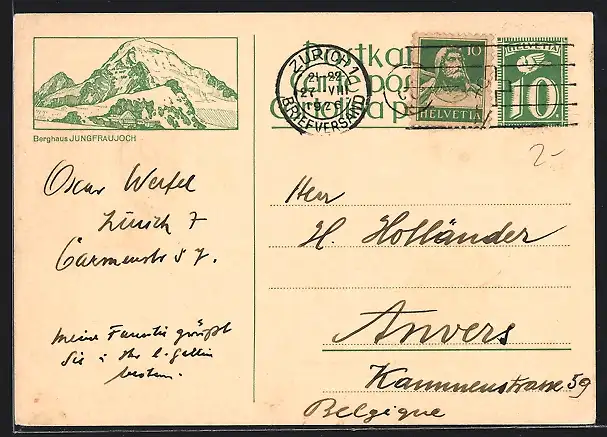 Postkarte
Carte postale
Cartolina postale
ZÜRICH 1
21-22
27. VIII
1926
BRIEFVERSAND
10
HELVETIA
HELVETIA
10
Berghaus JUNGFRAUJOCH
2-
Oscar Werfel
Zürich 7
Carmenstr 57.
meine Familie grüßt
Sie & Ihr l. Gattin
bestens.
Herr
H. Holländer
Anvers
Kammenstrasse 59
Belgique